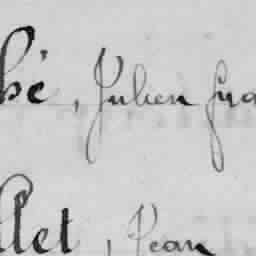 bé, Julien fra
llet, Jean